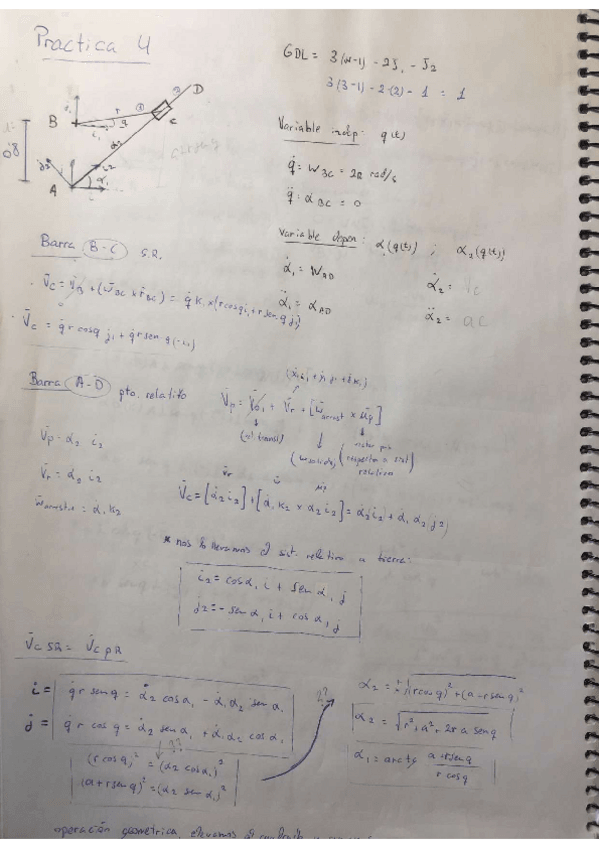 Practica 4
GDL = 3(n-1) - 2J₁ - J₂
3(3-1) - 2·(2) - 1 = 1
D
B
r
q
C
α₂
0'8
j₂
i₂
α₁
A
Variable indep: q(t)
q̇ = W_BC = 2π rad/s
q̈ = α_BC = 0
Variable depen: α₁(q(t)) ; α₂(q(t))
α̇₁ = W_AD
α̇₂ =
α̈₁ = α_AD
α̈₂ =
Barra B-C S.R.
V̄c = V̄_B + (W̄_BC x r̄_BC) = q̇ k₁ x (r cosq i₁ + r sen q j₁)
V̄c = q̇ r cosq j₁ + q̇ r sen q (-i₁)
Barra A-D pto. relatito
V̄p = V̄o₁ + V̄r + [W̄arrast x r̄p]
V̄r = α̇₂ i₂
W̄arrastre = α̇₁ k₂
V̄c = [α̇₂ i₂] + [α̇₁ k₂ x α₂ i₂] = α̇₂ i₂ + α̇₁ α₂ j₂
* nos lo llevamos al sist. relativo a tierra:
i₂ = cos α₁ i + sen α₁ j
j₂ = - sen α₁ i + cos α₁ j
V̄c SR = V̄c pR
i = q̇ r sen q = α̇₂ cos α₁ - α̇₁ α₂ sen α₁
j = q̇ r cos q = α̇₂ sen α₁ + α̇₁ α₂ cos α₁
??
(r cos q)² = (α₂ cos α₁)²
(a + r sen q)² = (α₂ sen α₁)²
¿?
α₂ = ± √(r cos q)² + (a - r sen q)²
α₂ = √r² + a² + 2 r a sen q
α₁ = arctg (a + r sen q) / (r cos q)
operación geometrica, elevamos al cuadrado